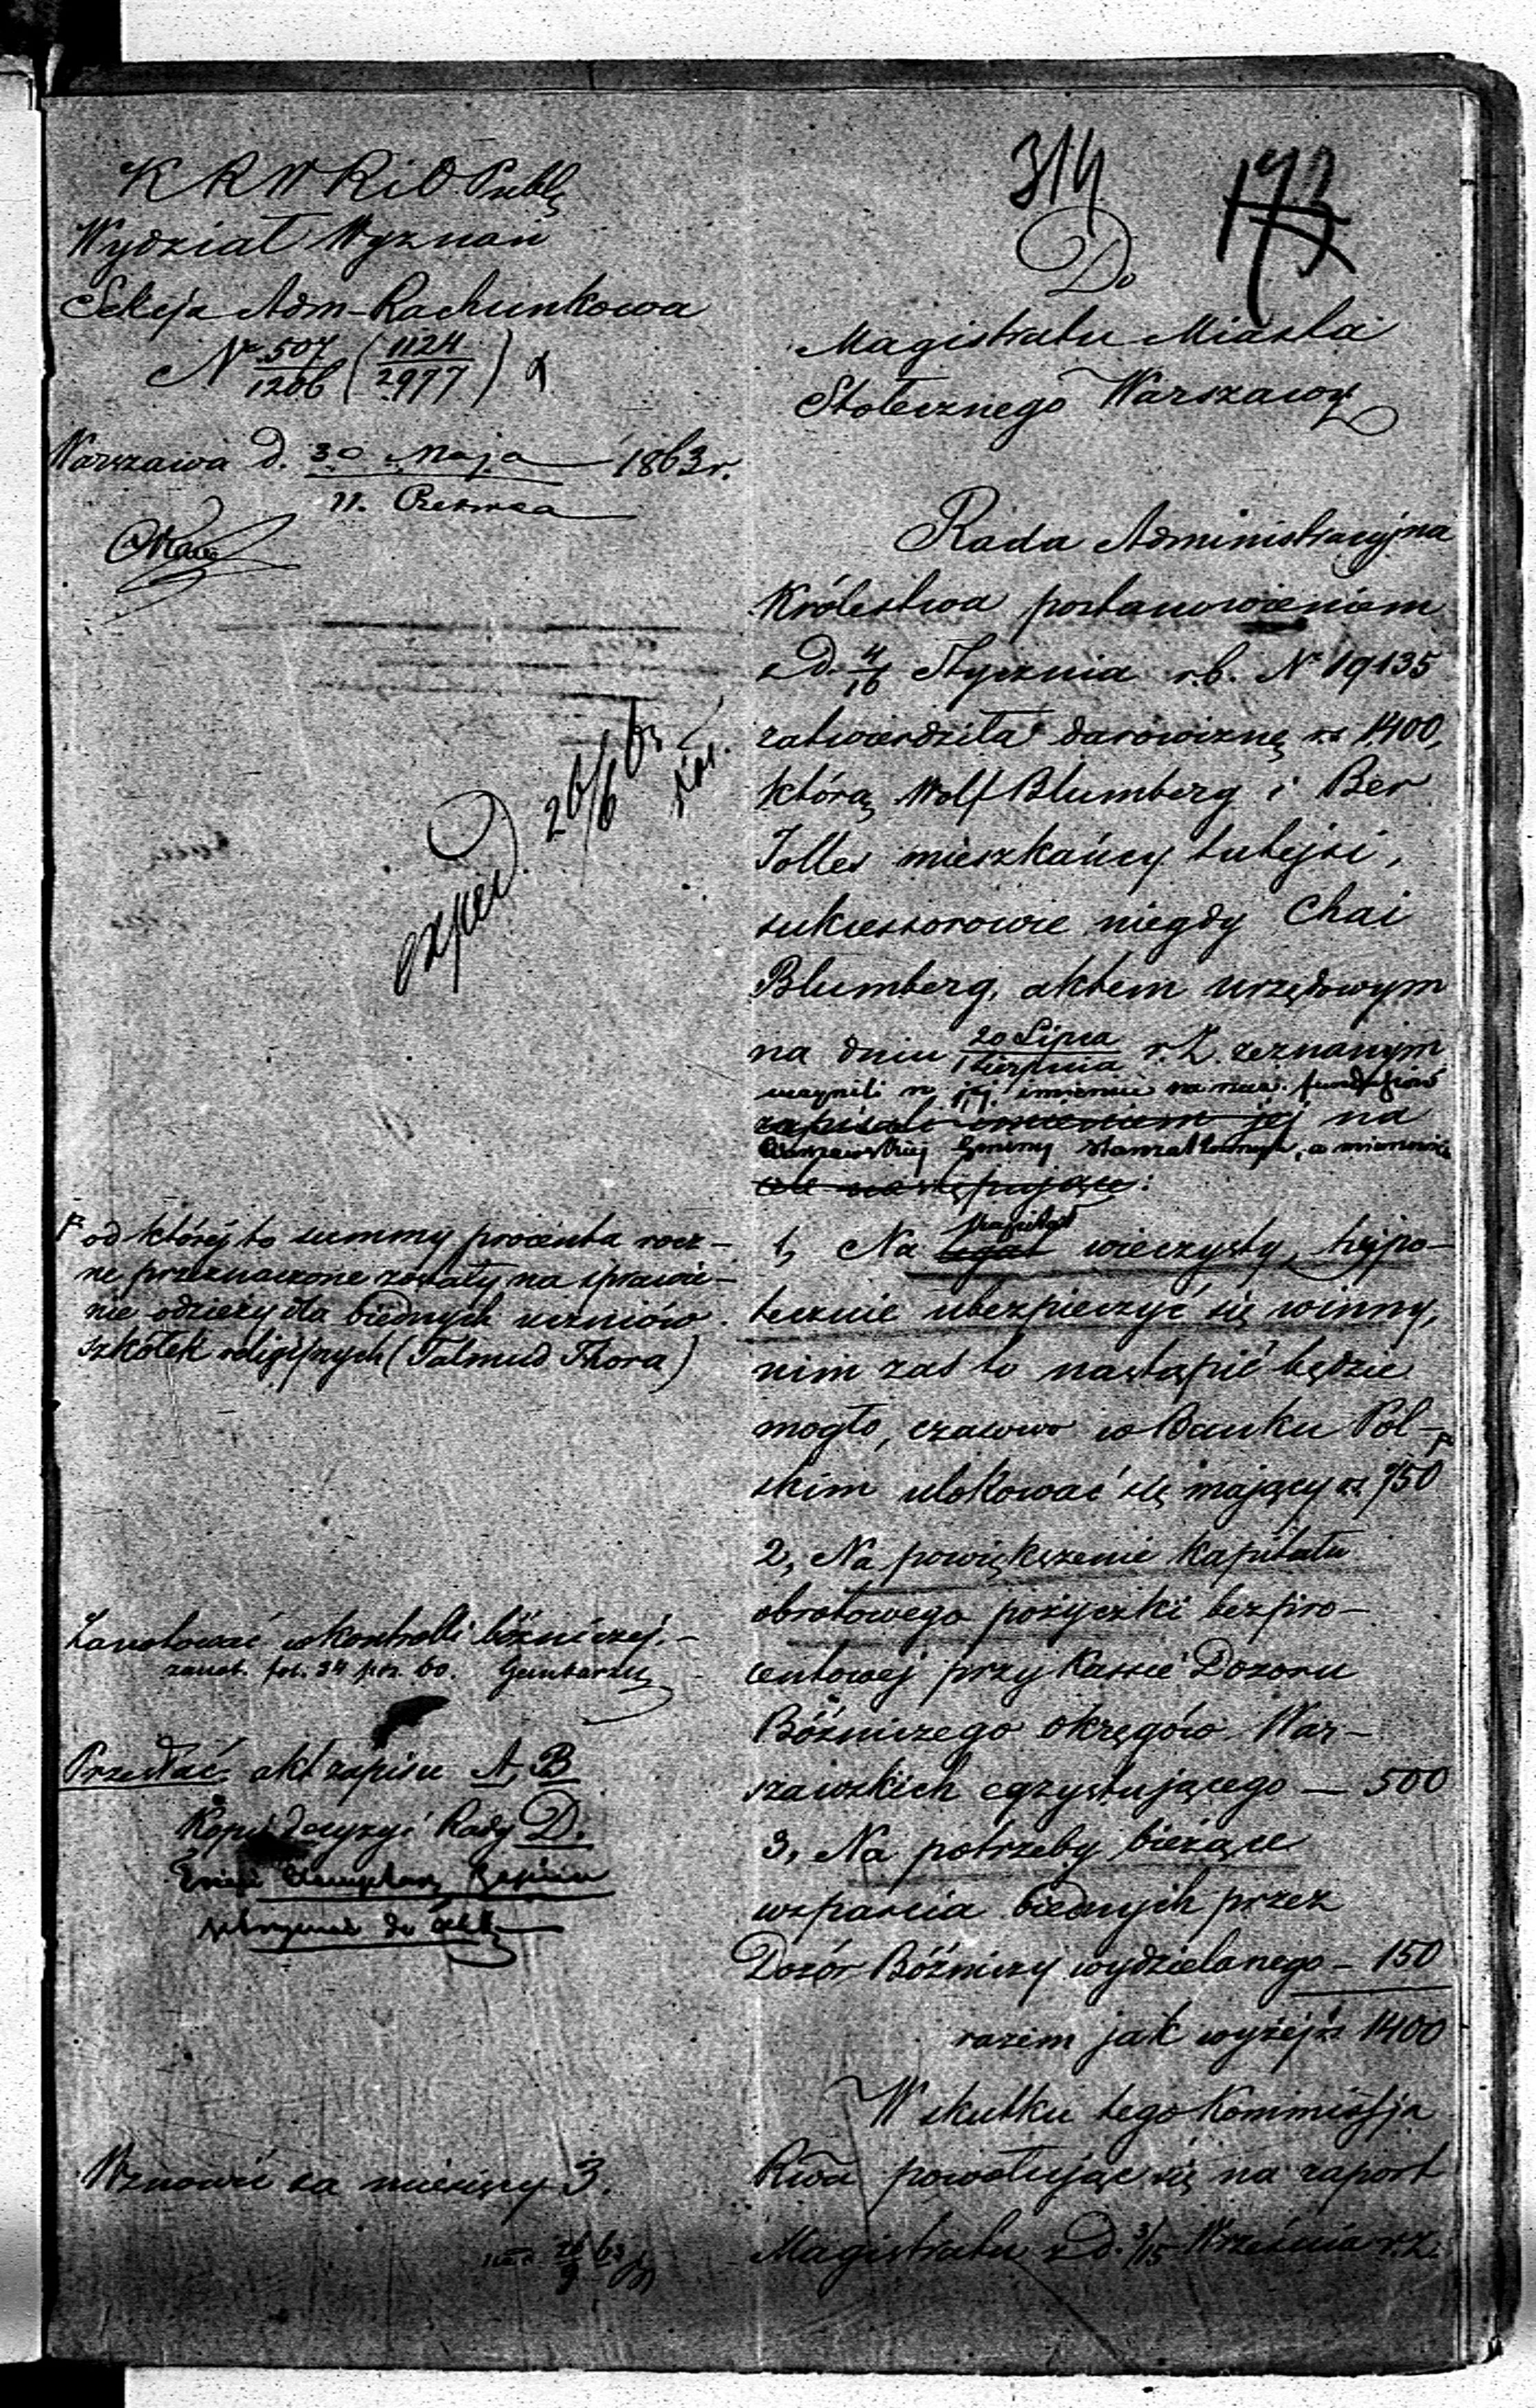 314
173
K R W R i O Publ
Wydział Wyznań
Sekcja Adm-Rachunkowa
No 507/1206 (1124/2977)
Warszawa d. 30 Maja 1863 r.
11. Czerwca
exped. 26/6 63
od którejto summy procenta rocz-
ne przeznaczone zostały na sprawie-
nie odzieży dla biednych uczniów
szkółek religijnych (Talmud Thora)
Zanotować w kontrolli bóźniczej.-
zanot. fol. 34 poz. 60.
Przesłać akt zapisu A, B
Kopię decyzyi Rady D.
Wznowić za miesięcy 3.
Do
Magistratu Miasta
Stołecznego Warszawy
Rada Administracyjna
Królestwa postanowieniem
z d. 4/16 Stycznia r.b. No 19135
zatwierdziła darowiznę rs 1400,
którą Wolf Blumberg i Ber
Jolles mieszkańcy tutejsi,
sukcessorowie niegdy Chai
Blumberg, aktem urzędowym
na dniu 20 Lipca/1 Sierpnia r.z. zeznanym
uczynili w jej imieniu na rzecz
zapisali imieniem jej na
Warszawskiej Gminy Starozakonnych, a mianowicie
cele następujące:
1, Na kapitał legat wieczysty, hypo-
tecznie ubezpieczyć się winny,
nim zaś to nastąpić będzie
mogło, czasowo w Banku Pol-
skim ulokować się mający rs 750
2, Na powiększenie kapitału
obrotowego pożyczki bezpro-
centowej przy Kassie Dozoru
Bóżniczego okręgów War-
szawskich egzystującego — 500
3, Na potrzeby bieżące
wsparcia biednych przez
Dozór Bóźniczy wydzielanego - 150
razem jak wyżej rs 1400
W skutku tego Kommissja
Rwa powołując się na raport
Magistratu z d. 3/15 Września r.z.